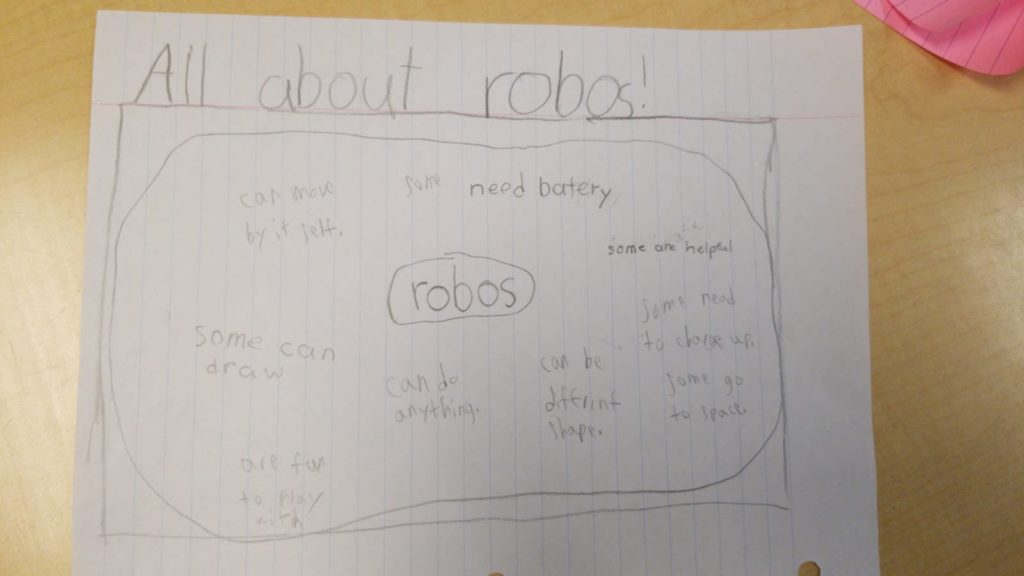 All about robos!
can move
by it self.
some need batery
some are helpful
robos
some need
to charge up.
some can
draw
can do
anything.
can be
dffrint
shape.
some go
to space.
are fun
to play
with